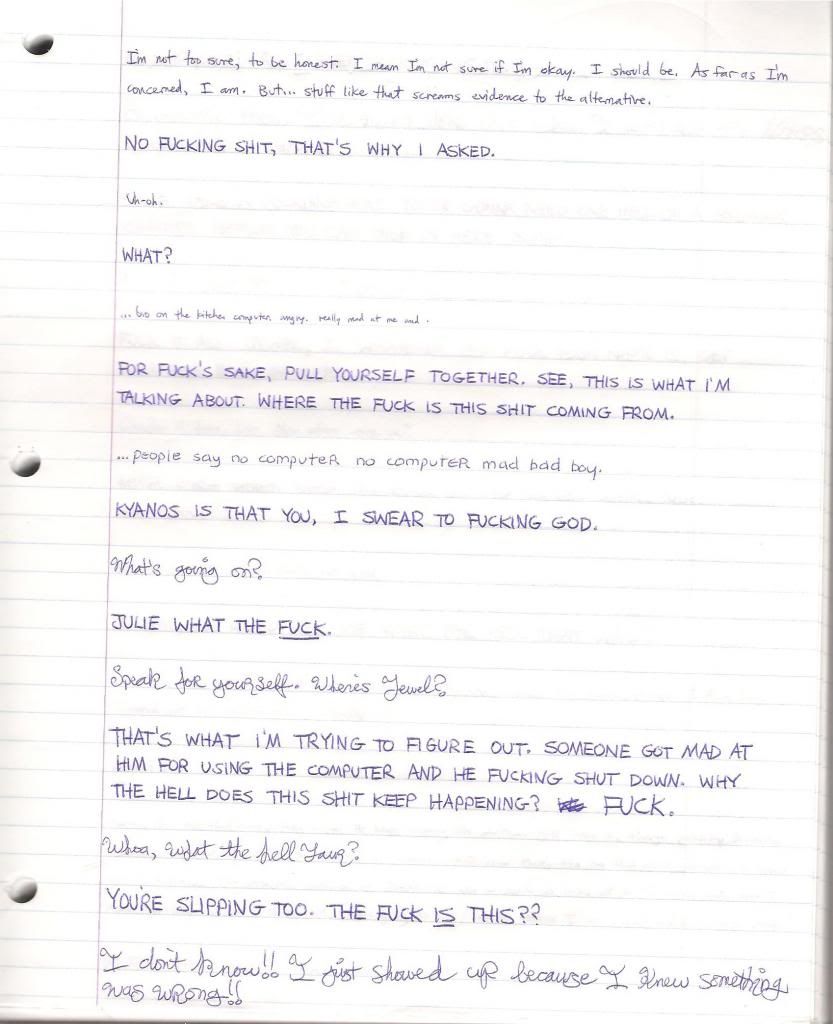 I'm not too sure, to be honest. I mean I'm not sure if I'm okay. I should be. As far as I'm
concerned, I am. But... stuff like that screams evidence to the alternative.
NO FUCKING SHIT, THAT'S WHY I ASKED.
Uh-oh.
WHAT?
...bro on the kitchen computer. angry. really mad at me and.
FOR FUCK'S SAKE, PULL YOURSELF TOGETHER. SEE, THIS IS WHAT I'M
TALKING ABOUT. WHERE THE FUCK IS THIS SHIT COMING FROM.
...people say no computeR no computeR mad bad boy.
KYANOS IS THAT YOU, I SWEAR TO FUCKING GOD.
What's going on?
JULIE WHAT THE FUCK.
Speak for yourself. Where's Jewel?
THAT'S WHAT I'M TRYING TO FIGURE OUT. SOMEONE GOT MAD AT
HIM FOR USING THE COMPUTER AND HE FUCKING SHUT DOWN. WHY
THE HELL DOES THIS SHIT KEEP HAPPENING? FUCK.
Whoa, what the hell
YOU'RE SLIPPING TOO. THE FUCK IS THIS??
I don't know!! I just showed up because I knew something
was wrong!!